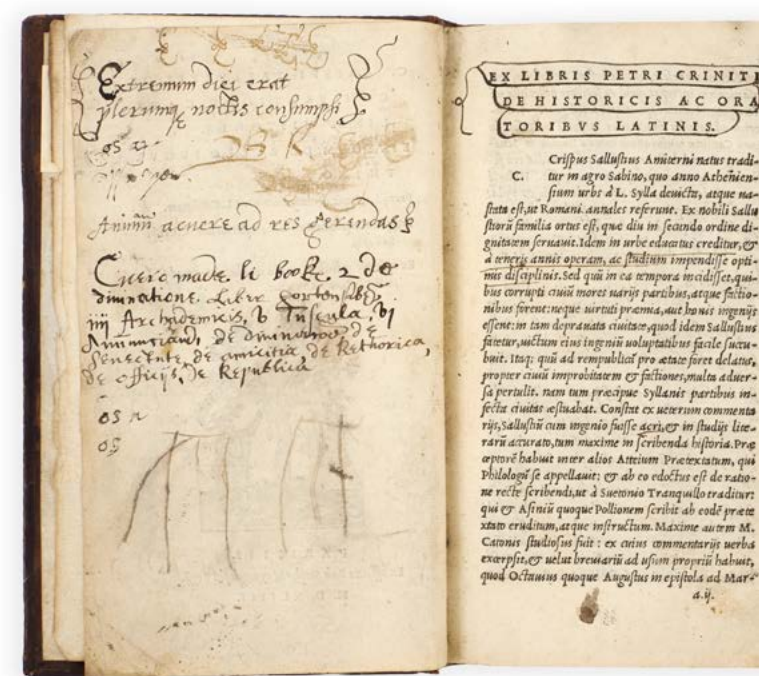 Extremum diei erat
plerumq noctis consumpsi
Animū acuere ad res gerendas
Cicero made. li booke. 2 de
divinatione. Liber hortensius
iiii Archademicis, v Tuscula, vi
de
Senectute, de amicitia, de Rethorica,
de officijs, de Republica
os
EX LIBRIS PETRI CRINITI
DE HISTORICIS AC ORA
TORIBVS LATINIS.
Crispus Sallustius Amiterni natus tradi-
C. tur in agro Sabino, quo anno Athenien-
sium urbs à L. Sylla deuicta, atque ua-
stata est, ut Romani annales referunt. Ex nobili Sallu
stiorū familia ortus est, quæ diu in secundo ordine di-
gnitatem seruauit. Idem in urbe educatus creditur, &
à teneris annis operam, ac studium impendisse opti-
mis disciplinis. Sed quū in ea tempora incidisset, qui-
bus corrupti ciuiū mores uarijs partibus, atque factio-
nibus forent: neque uirtuti præmia, aut bonis ingenijs
essent: in tam deprauata ciuitate, quod idem Sallustius
fatetur, uictum eius ingeniū uoluptatibus facile succu-
buit. Itaq; quū ad rempublicā pro ætate foret delatus,
propter ciuiū improbitatem & factiones, multa aduer-
sa pertulit. nam tum præcipue Syllanis partibus in-
fecta ciuitas æstuabat. Constat ex ueterum commenta
rijs, Sallustiū cum ingenio fuisse acri, & in studijs lite-
rarū accurato, tum maxime in scribenda historia. Præ
ceptorē habuit inter alios Atteium Prætextatum, qui
Philologū se appellauit: & ab eo edoctus est de ratio-
ne recte scribendi, ut à Suetonio Tranquillo traditur:
qui & Asiniū quoque Pollionem scribit ab eodē præte
xtato eruditum, atque instructum. Maxime autem M.
Catonis studiosus fuit: ex cuius commentarijs uerba
excerpsit, & uelut breuiariū ad usum propriū habuit,
quod Octauius quoque Augustus in epistola ad Mar-
a.ij.